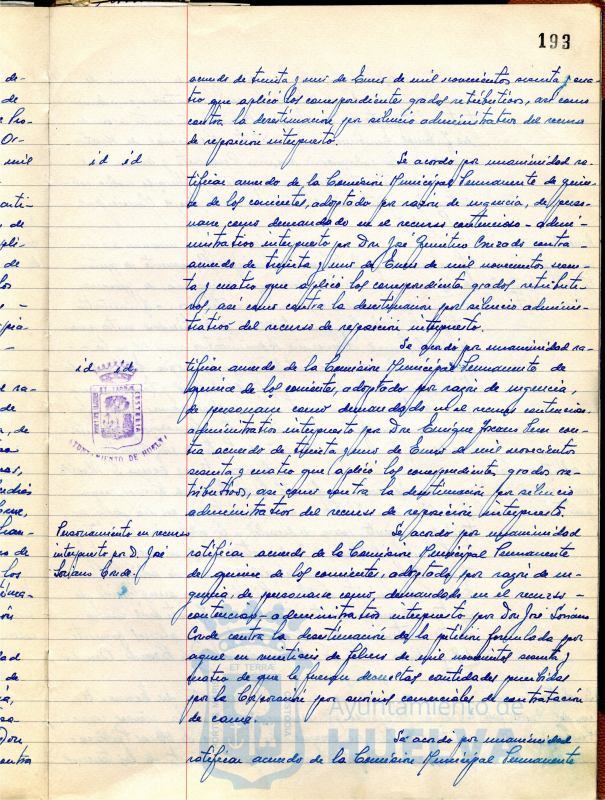 193
acuerdo de treinta y uno de Enero de mil novecientos sesenta y cua-
tro que aplicó los correspondientes grados retributivos, así como
contra la desestimación por silencio administrativo del recurso
de reposición interpuesto.
id id
Se acordó por unanimidad ra-
tificar acuerdo de la Comisión Municipal Permanente de quin-
ce de los corrientes, adoptado por razón de urgencia, de perso-
narse como demandado en el recurso contencioso-admi-
nistrativo interpuesto por Don José Quintero contra
acuerdo de treinta y uno de Enero de mil novecientos sesen-
ta y cuatro que aplicó los correspondientes grados retributi-
vos, así como contra la desestimación por silencio adminis-
trativo del recurso de reposición interpuesto.
id id
Se acordó por unanimidad ra-
tificar acuerdo de la Comisión Municipal Permanente de
quince de los corrientes, adoptado por razón de urgencia,
de personarse como demandado en el recurso contencioso-
administrativo interpuesto por Don Enrique con-
tra acuerdo de treinta y uno de Enero de mil novecientos
sesenta y cuatro que aplicó los correspondientes grados re-
tributivos, así como contra la desestimación por silencio
administrativo del recurso de reposición interpuesto.
AYUNTAMIENTO DE HUELVA
Personamiento en recurso
interpuesto por D. José
Soriano Conde.
Se acordó por unanimidad
ratificar acuerdo de la Comisión Municipal Permanente
de quince de los corrientes, adoptado por razón de ur-
gencia, de personarse como demandado en el recurso
contencioso-administrativo interpuesto por Don José Soriano
Conde contra la desestimación de la petición formulada por
aquel en veintiseis de febrero de mil novecientos sesenta y
cuatro de que le fueran devueltas cantidades percibidas
por la Corporación por servicios comerciales de contratación
de carne.
Se acordó por unanimidad
ratificar acuerdo de la Comisión Municipal Permanente
Ayuntamiento de
HUELVA